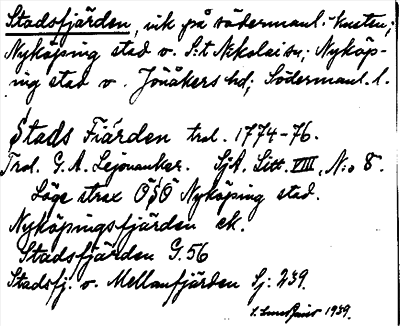 Stadsfjärden, vik på södermanl. kusten;
Nyköping stad o. S:t Nikolai sn; Nyköp-
ing stad o. Jönåkers hd; Södermanl. l.
Stads Fiärden trol. 1774-76.
Trol. G. A. Lejonanker. SjA. Litt. VIII, N:o 8.
Läge strax ÖSÖ Nyköping stad.
Nyköpingsfjärden ek.
Stadsfjärden G.56
Stadsfj. o. Mellanfjärden Sj: 239.
1939.